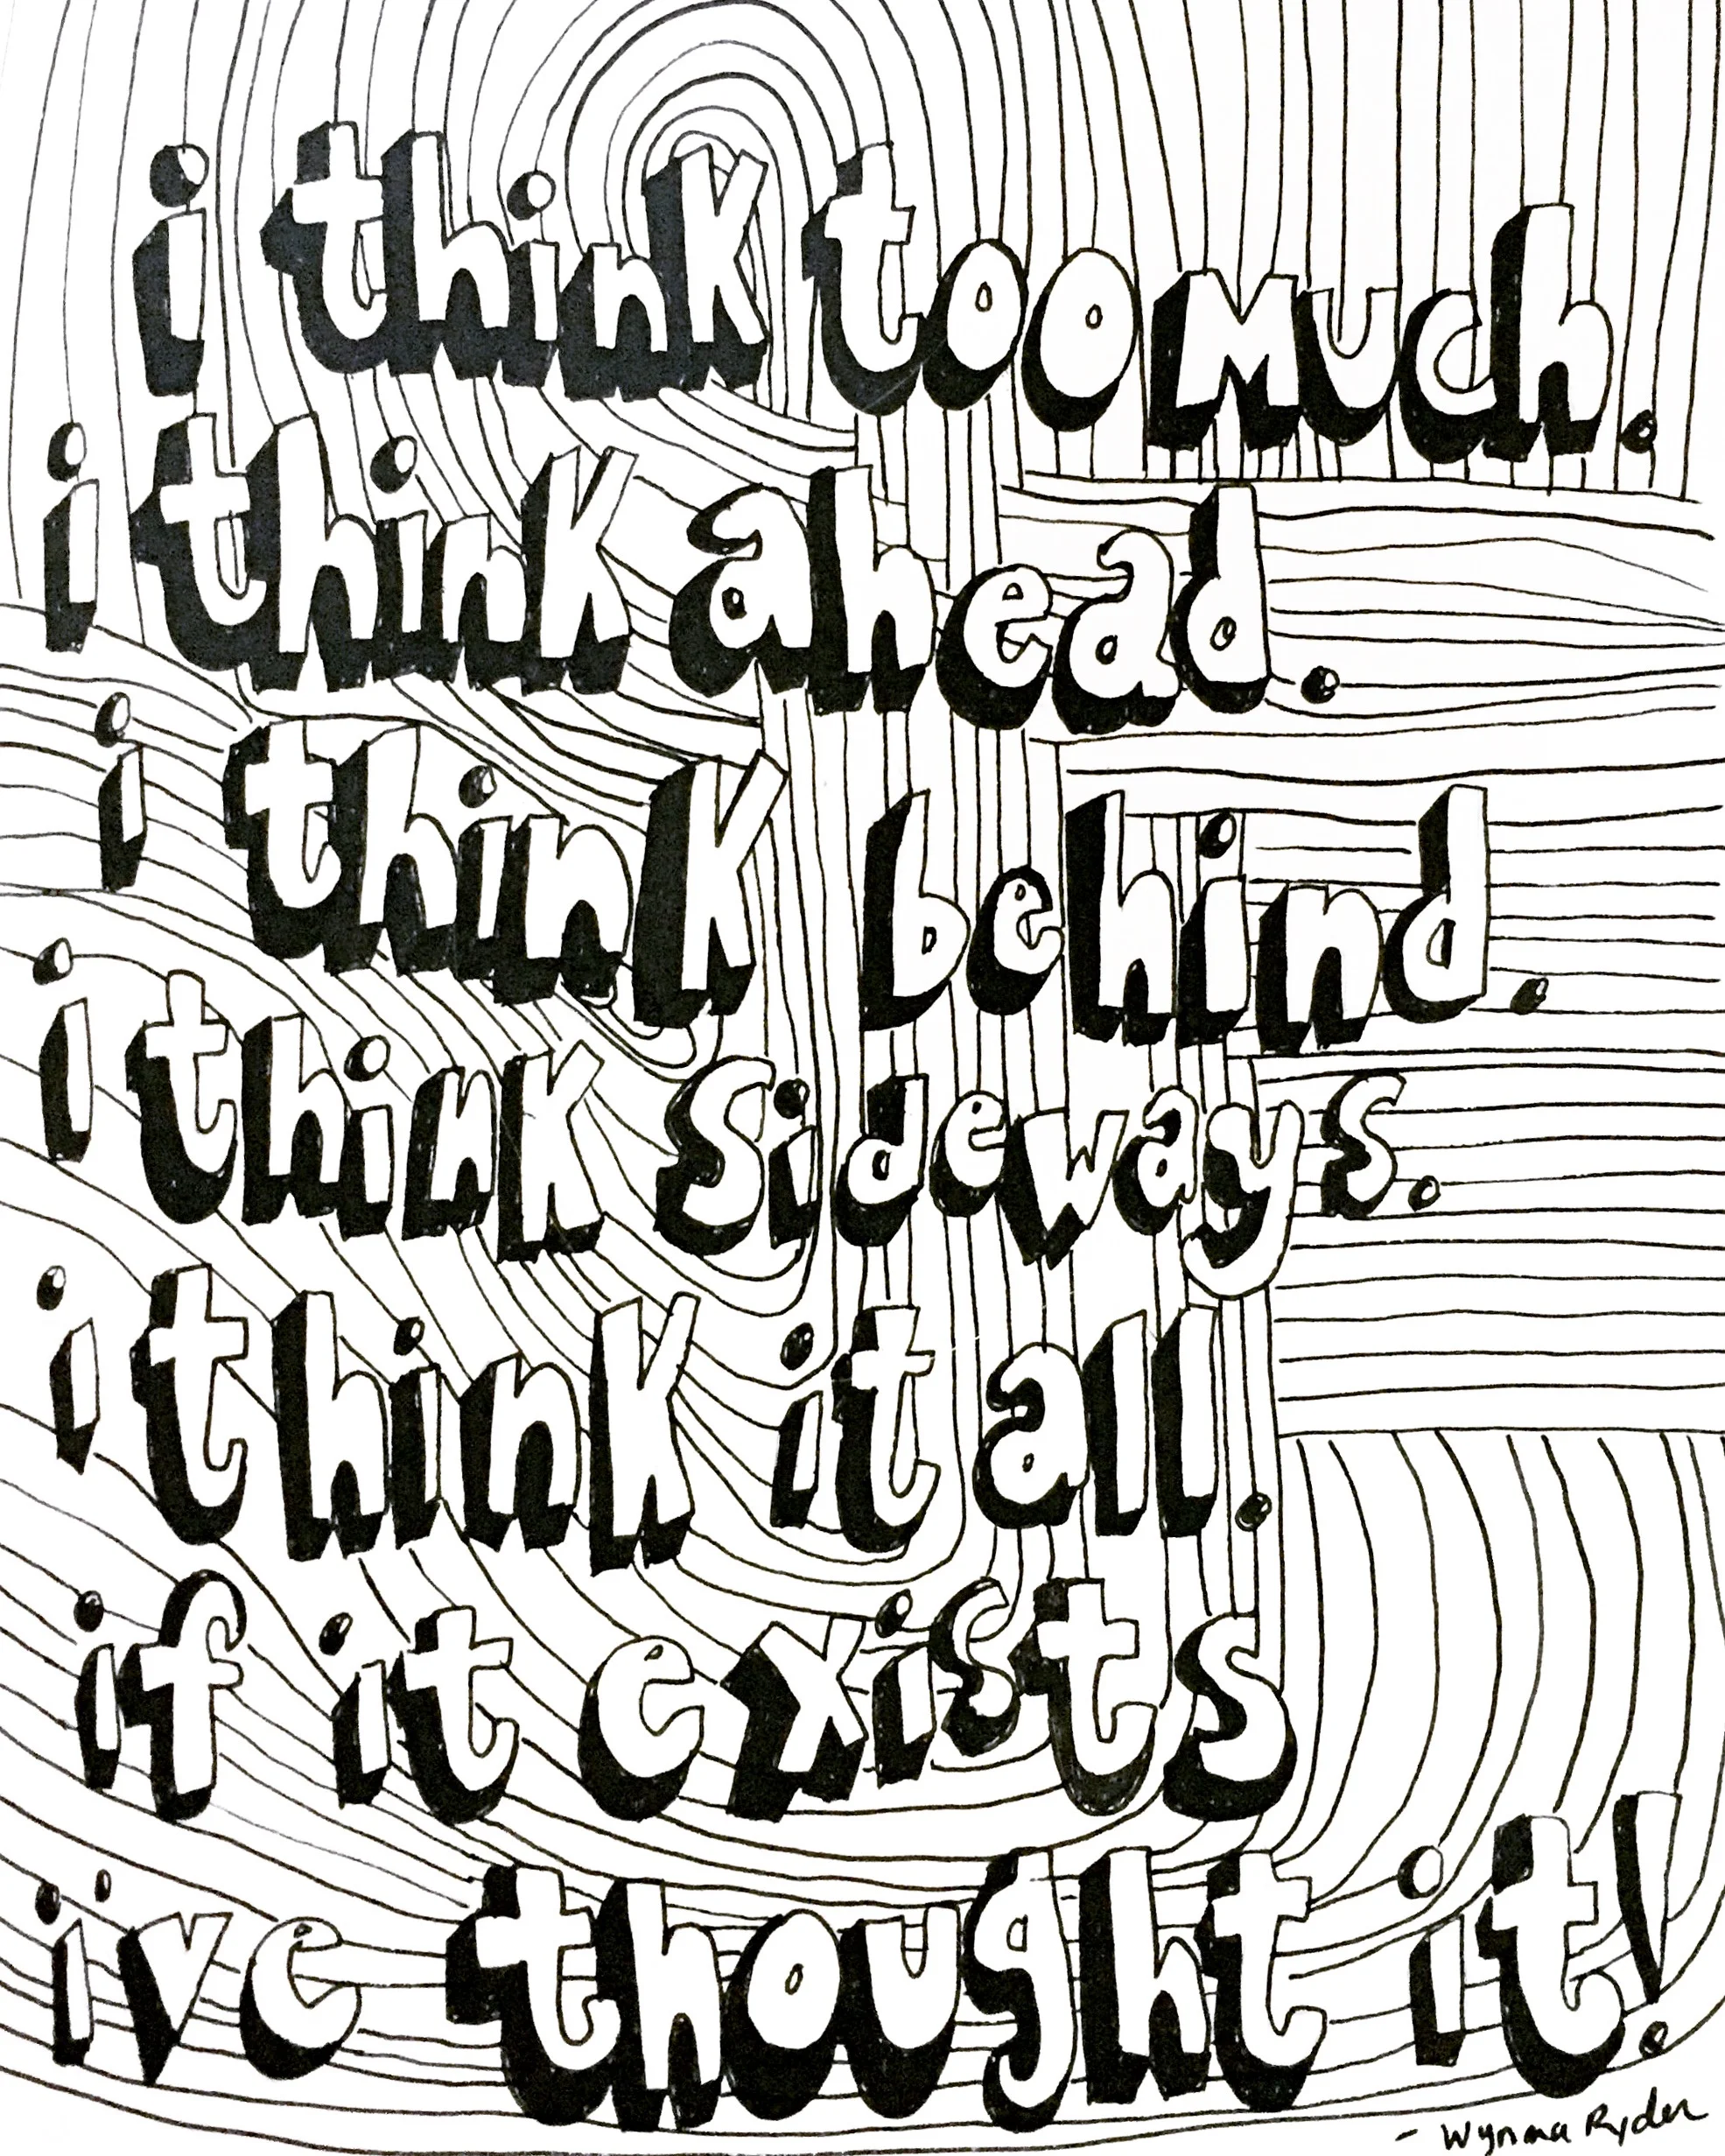 i think too much.
i think ahead.
i think behind.
i think sideways.
i think it all.
if it exists
i've thought it!
- Wynona Ryder